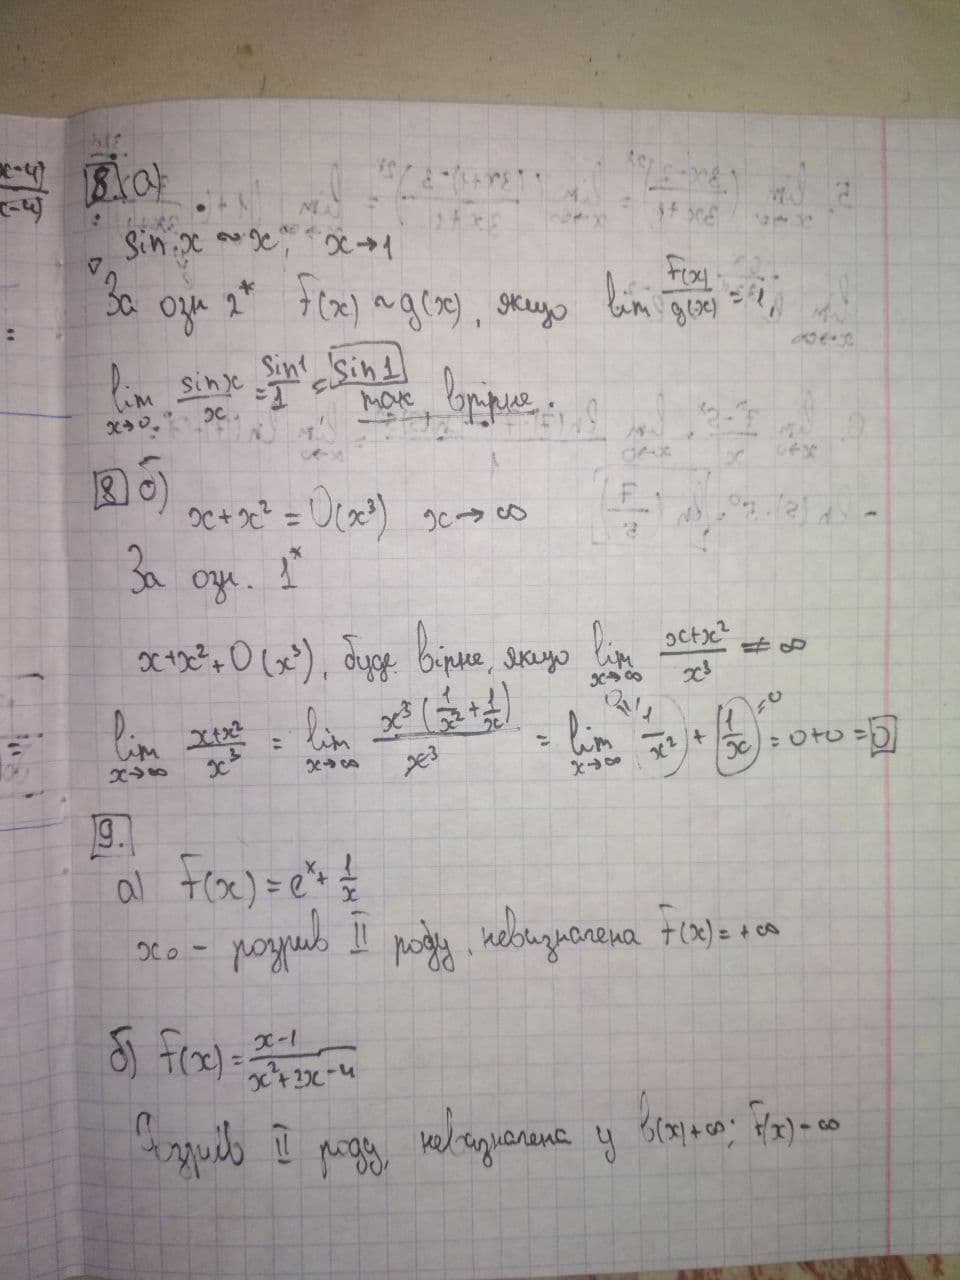 x-4)
x-4)
8. а)
sin x ~ x, x→1
За озн 2* F(x) ~ g(x), якщо lim F(x)/g(x) = 1,
lim x→0 sinx/x = sin1/1 = sin1
так, врірне.
8 б)
x+x² = O(x³) x→∞
За озн. 1*
x+x²+O(x³), буде вірне, якщо lim x→∞ x+x²/x³ ≠ ∞
lim x→∞ x+x²/x³ = lim x→∞ x³(1/x²+1/x)/x³ = lim x→∞ (1/x²) + (1/x) = 0+0 = 0
9.
а) F(x) = eˣ + 1/x
x₀ - розрив II роду, невизначена F(x) = +∞
б) F(x) = x-1/x²+3x-4
Розрив II роду, невизначена у +∞; F(x) -∞